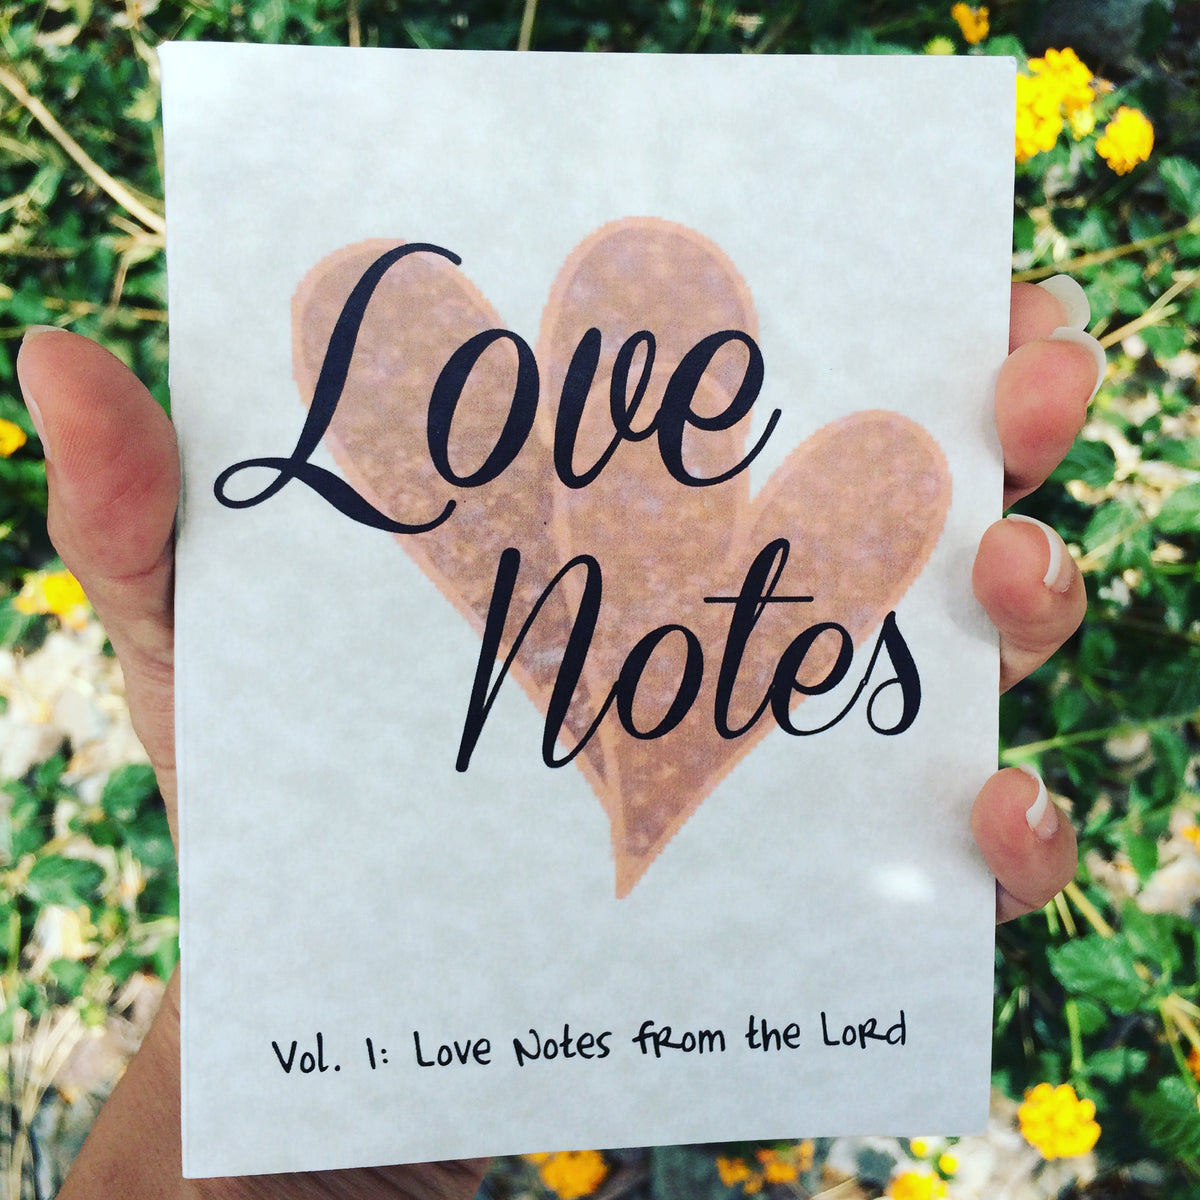 Love
Notes
Vol. 1: Love Notes from the Lord